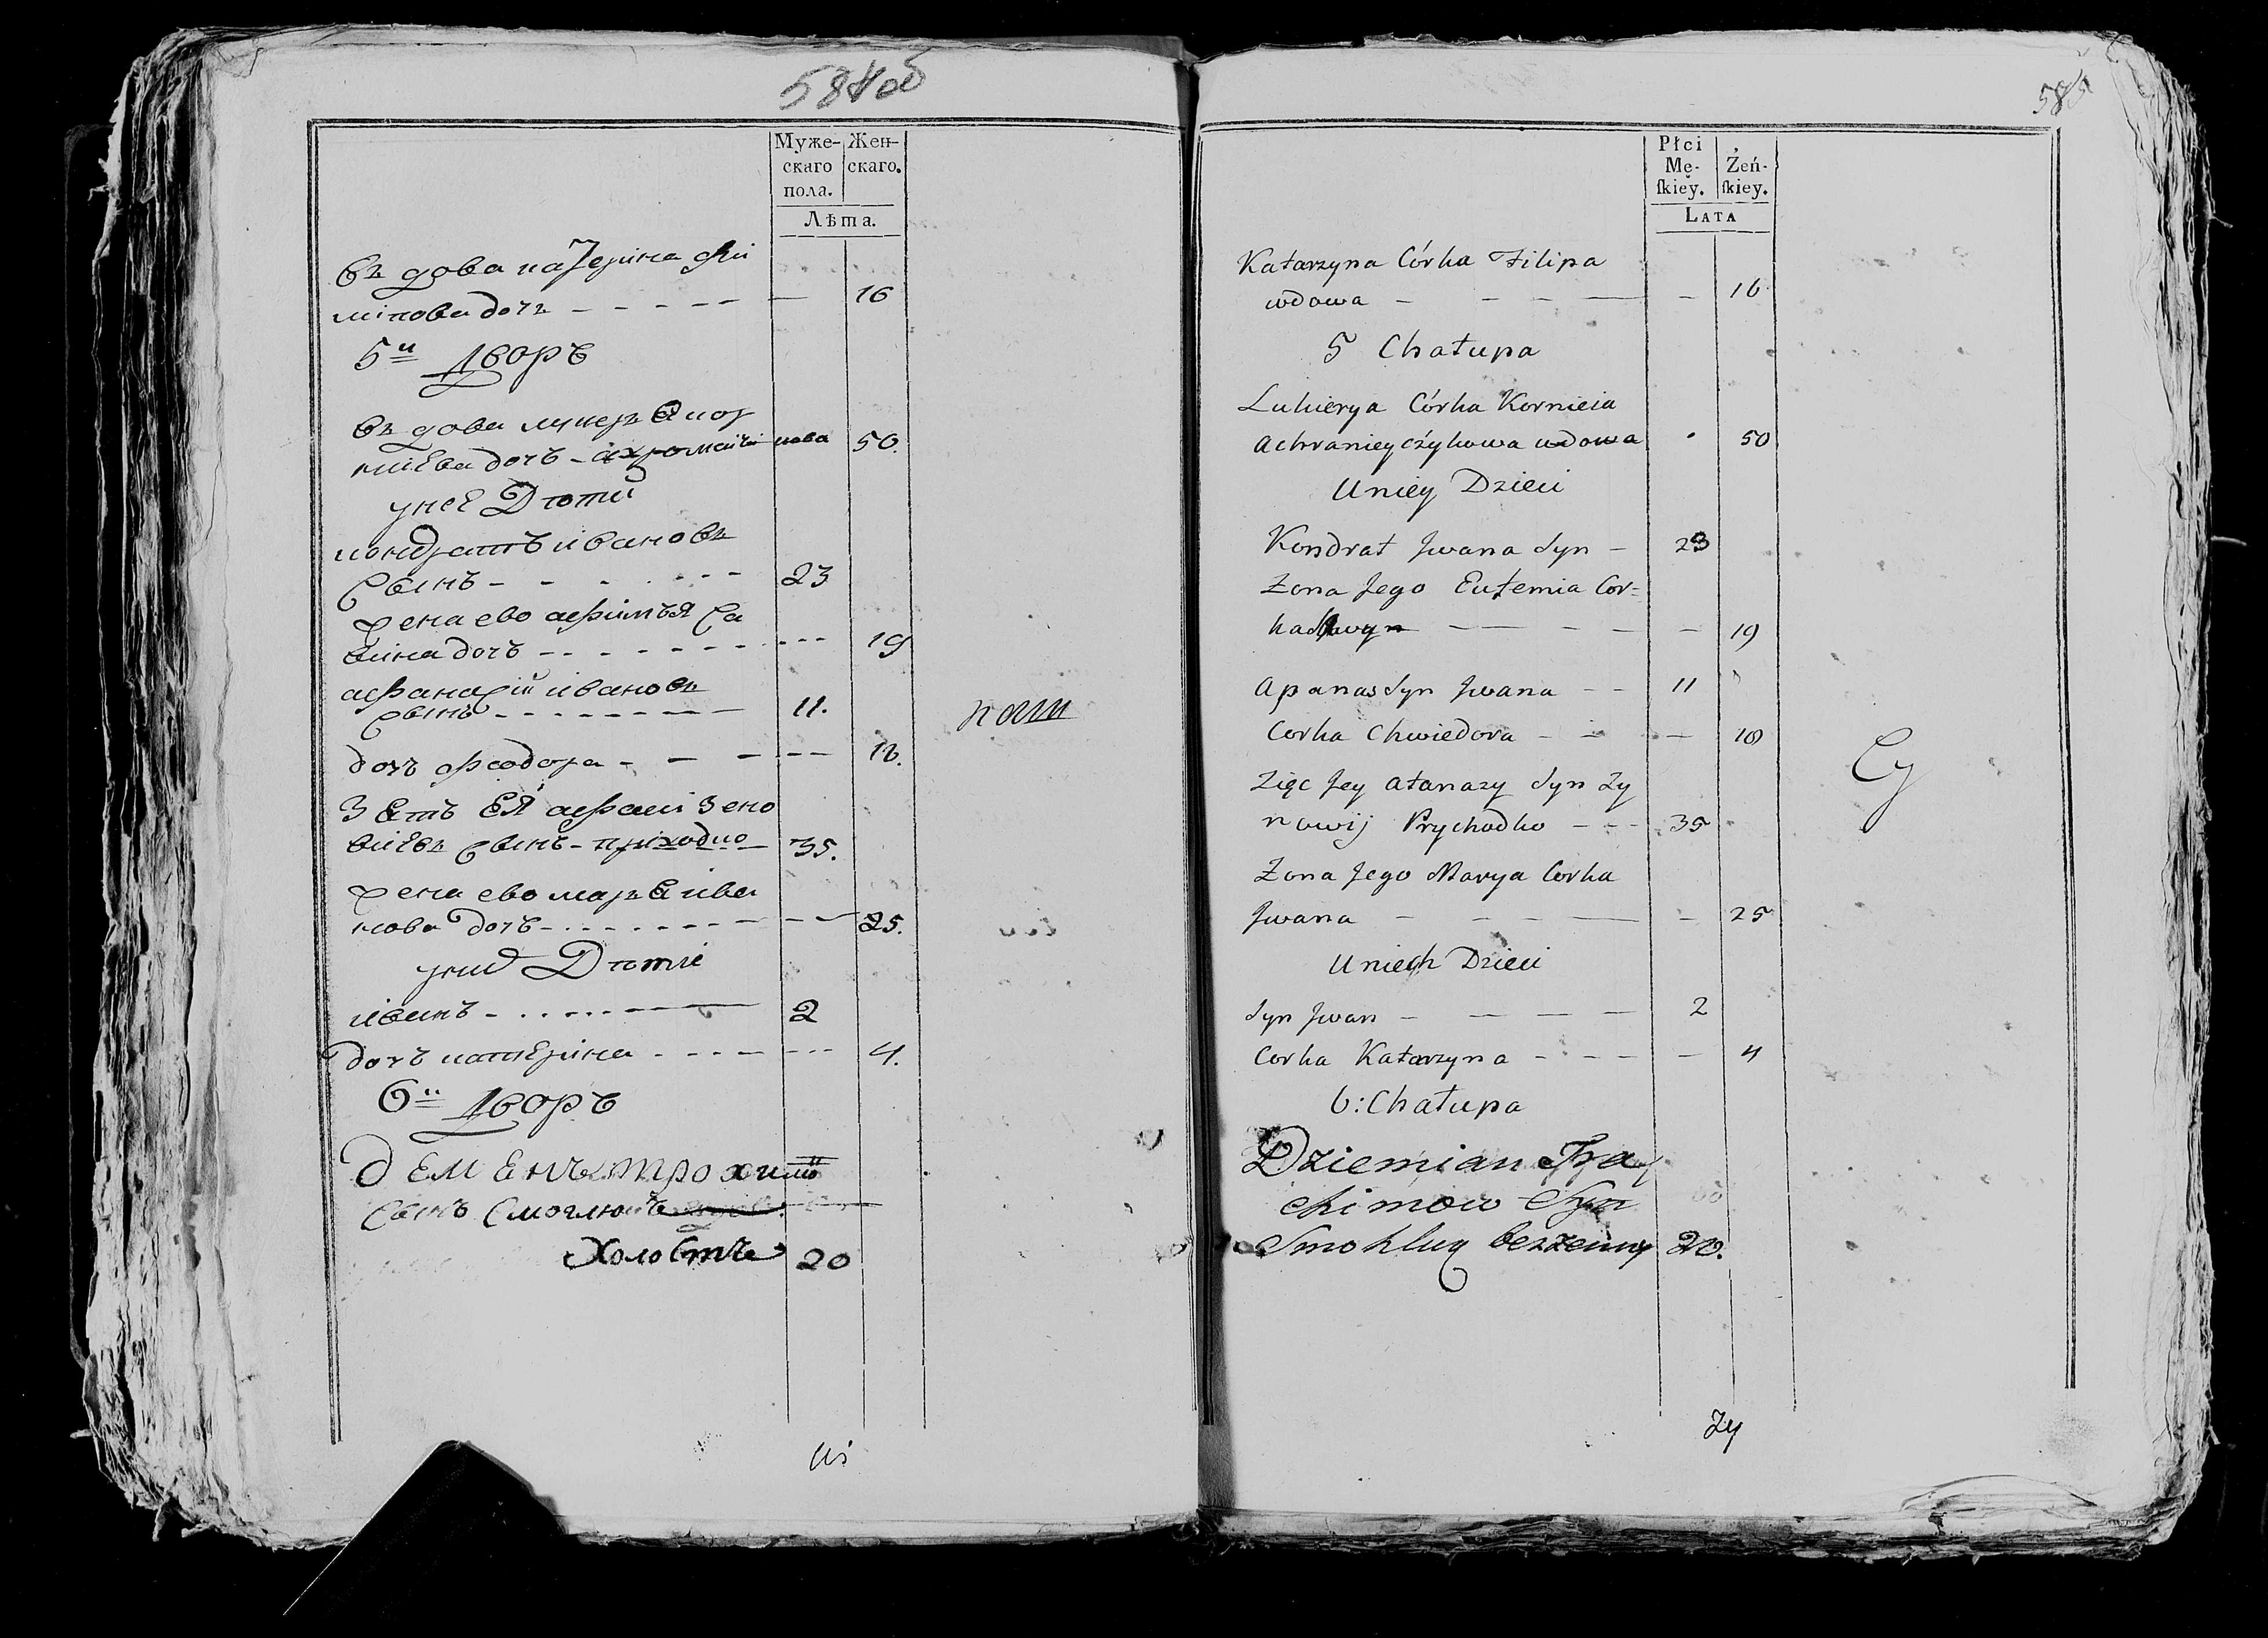 584об
Муже- Жен-
скаго скаго.
пола.
Лѣта.
въ дова катерина фи
липова дочь - - - - - — 16
5й Дворъ
въ дова лукеръя кор
ниева дочь - 50.
у неё Дѣти
кондратъ ивановъ
сынъ - - - - - - - 23
жена ево афимъя са
вина дочъ - - - - - - - - 19
афанасій ивановъ
сынъ - - - - - - - 11.
дочь федора - - - -
зеть ея афанасі зено
виевъ сынъ - приходко 35.
жена ево маръя ива
нова дочъ - - - - - - - 25.
у них Дѣти
иванъ - - - - - - 2
дочъ катерина - - - - - 4.
6й Дворъ
деменъ трохим
сынъ
Холостъ 20
585
Płci
Mę- Żeń-
ſkiey. ſkiey.
LATA
Katarzyna Córka Filipa
wdowa - - - — - 16
5 Chałupa
Lukierya Córka Kornieia
Achranieyczykowa wdowa 50
U niey Dzieci
Kondrat Jwana Syn - 23
Żona Jego Eufemia Cor=
ka - - - - 19
Apanas Syn Jwana - - 11
Corka Chwiedora - - -
Zięc Jey Atanazy Syn Zy
nowij Prychodko - - - 35
Żona Jego Marya Corka
Jwana - - - — - 25
U niech Dzieci
Syn Jwan - - - - 2
Corka Katarzyna - - - - - 4
6: Chałupa
Dziemian Tra
chimow Syn
Smohluy bezżenny 20.